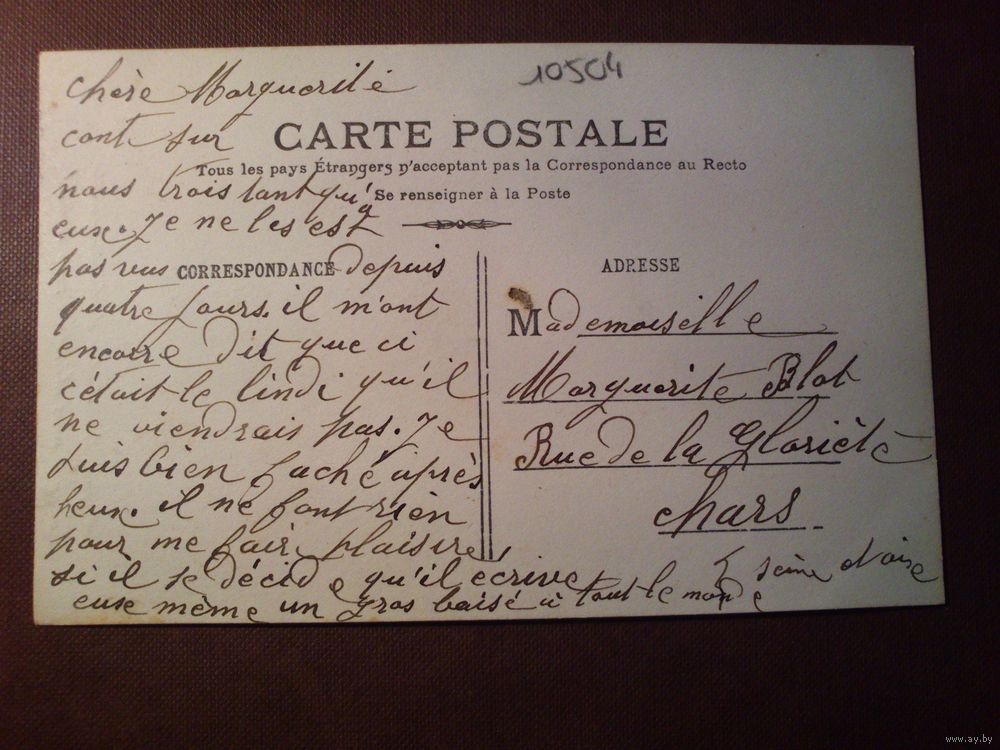 10504
chère Marguerite
cont sur
CARTE POSTALE
Tous les pays Étrangers n'acceptant pas la Correspondance au Recto
Se renseigner à la Poste
nous trois tant qu'a
eux. Je ne les est
pas vus
CORRESPONDANCE
depuis
quatre jours. il m'ont
encorre dit que ci
c'était le lindi qu'il
ne viendrais pas. Je
suis bien faché après
heux. il ne font rien
pour me fair plaisire
si il se décide qu'il écrive
euse même un gros baisé a tout le monde
ADRESSE
Mademoiselle
Marguerite Blot
Rue de la Glorièté
chars
seine et oise
www.ay.by